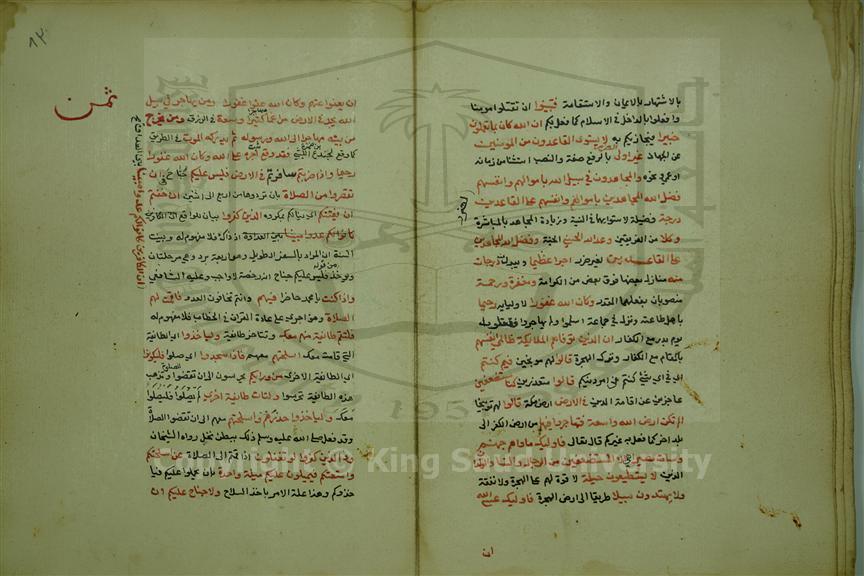 بالاشتهار بالايمان والاستقامة فتبينوا ان تقتلوا مومنا
وافعلوا بالداخل في الاسلام كما فعل بكم ان الله كان بما تعملون
خبيرا فيجازيكم به لا يستوي القاعدون من المومنين
عن الجهاد غير اولي الضرر بالرفع صفة والنصب استثنا من زمانة
او عمى ونحوه والمجاهدون في سبيل الله باموالهم وانفسهم
فضل الله المجاهدين باموالهم وانفسهم على القاعدين
لضرر
درجة فضيلة لاستوايهما في النية وزيادة المجاهد بالمباشرة
وكلا من الفريقين وعد الله الحسنى الجنة وفضل الله المجاهدين
على القاعدين لغير ضرر اجرا عظيما ويبدل منه درجات
منه منازل بعضها فوق بعض من الكرامة ومغفرة ورحمة
منصوبان بفعلهما المقدر وكان الله غفورا لاوليايه رحيما
باهل طاعته ونزل في جماعة اسلموا ولم يهاجروا فقتلوا
يوم بدر مع الكفار ان الذين توفاهم الملايكة ظالمي انفسهم
بالمقام مع الكفار وترك الهجرة قالوا لهم موبخين فيم كنتم
اي في اي شي كنتم من امر دينكم قالوا معتذرين كنا مستضعفين
عاجزين عن اقامة الدين في الارض ارض مكة قالوا لهم توبيخا
الم تكن ارض الله واسعة فتهاجروا فيها من ارض الكفر الى
بلد اخر كما فعل غيركم قال تعالى فاوليك ماواهم جهنم
وساءت مصيرا هي الا المستضعفين من الرجال والنسا والولدان
الذين لا يستطيعون حيلة لا قوة لهم على الهجرة ولا نفقة
ولا يهتدون سبيلا طريقا الى ارض الهجرة فاوليك عسى الله
ان
٨٢
ثمن
ان يعفوا عنهم وكان الله عفوا غفورا ومن يهاجر في سبيل
الله يجد في الارض مراغما مهاجرا كثيرا وسعة في الرزق ومن يخرج
من بيته مهاجرا الى الله ورسوله ثم يدركه الموت في الطريق
كما وقع لجندع بن ضمرة الليثي فقد وقع ثبت اجره على الله وكان الله غفورا
رحيما واذا ضربتم سافرتم في الارض فليس عليكم جناح في ان
تقصروا من الصلاة بان تردوها من اربع الى اثنين ان خفتم
ان يفتنكم اي ينالكم بمكروه الذين كفروا بيان للواقع ان الكافرين
كانوا لكم عدوا مبينا بين العداوة اذ ذاك فلا مفهوم له وبينت
السنة ان المراد بالسفر الطويل وهو اربعة برد وهي مرحلتان
ويوخذ من قوله فليس عليكم جناح انه رخصة لا واجب وعليه الشافعي
واذا كنت يا محمد حاضرا فيهم وانتم تخافون العدو فاقمت لهم
الصلاة وهذا جري على عادة القران في الخطاب فلا مفهوم له
فلتقم طايفة منهم معك وتتاخر طايفة ولياخذوا اي الطايفة
التي قامت معك اسلحتهم معهم فاذا سجدوا اي صلوا فليكونوا
اي الطايفة الاخرى من ورايكم يحرسون الى ان تقضوا الصلاة وتذهب
هذه الطايفة تحرس ولتات طايفة اخرى لم يصلوا فليصلوا
معك ولياخذوا حذرهم واسلحتهم معهم الى ان تقضوا الصلاة
وقد فعل صلى الله عليه وسلم ذلك ببطن نخل رواه الشيخان
ود الذين كفروا لو تغفلون اذا قمتم الى الصلاة عن اسلحتكم
وامتعتكم فيميلون عليكم ميلة واحدة بان يحملوا عليكم فيا
خذوكم وهذا علة الامر باخذ السلاح ولا جناح عليكم ان
Copyright © King Saud University
1957